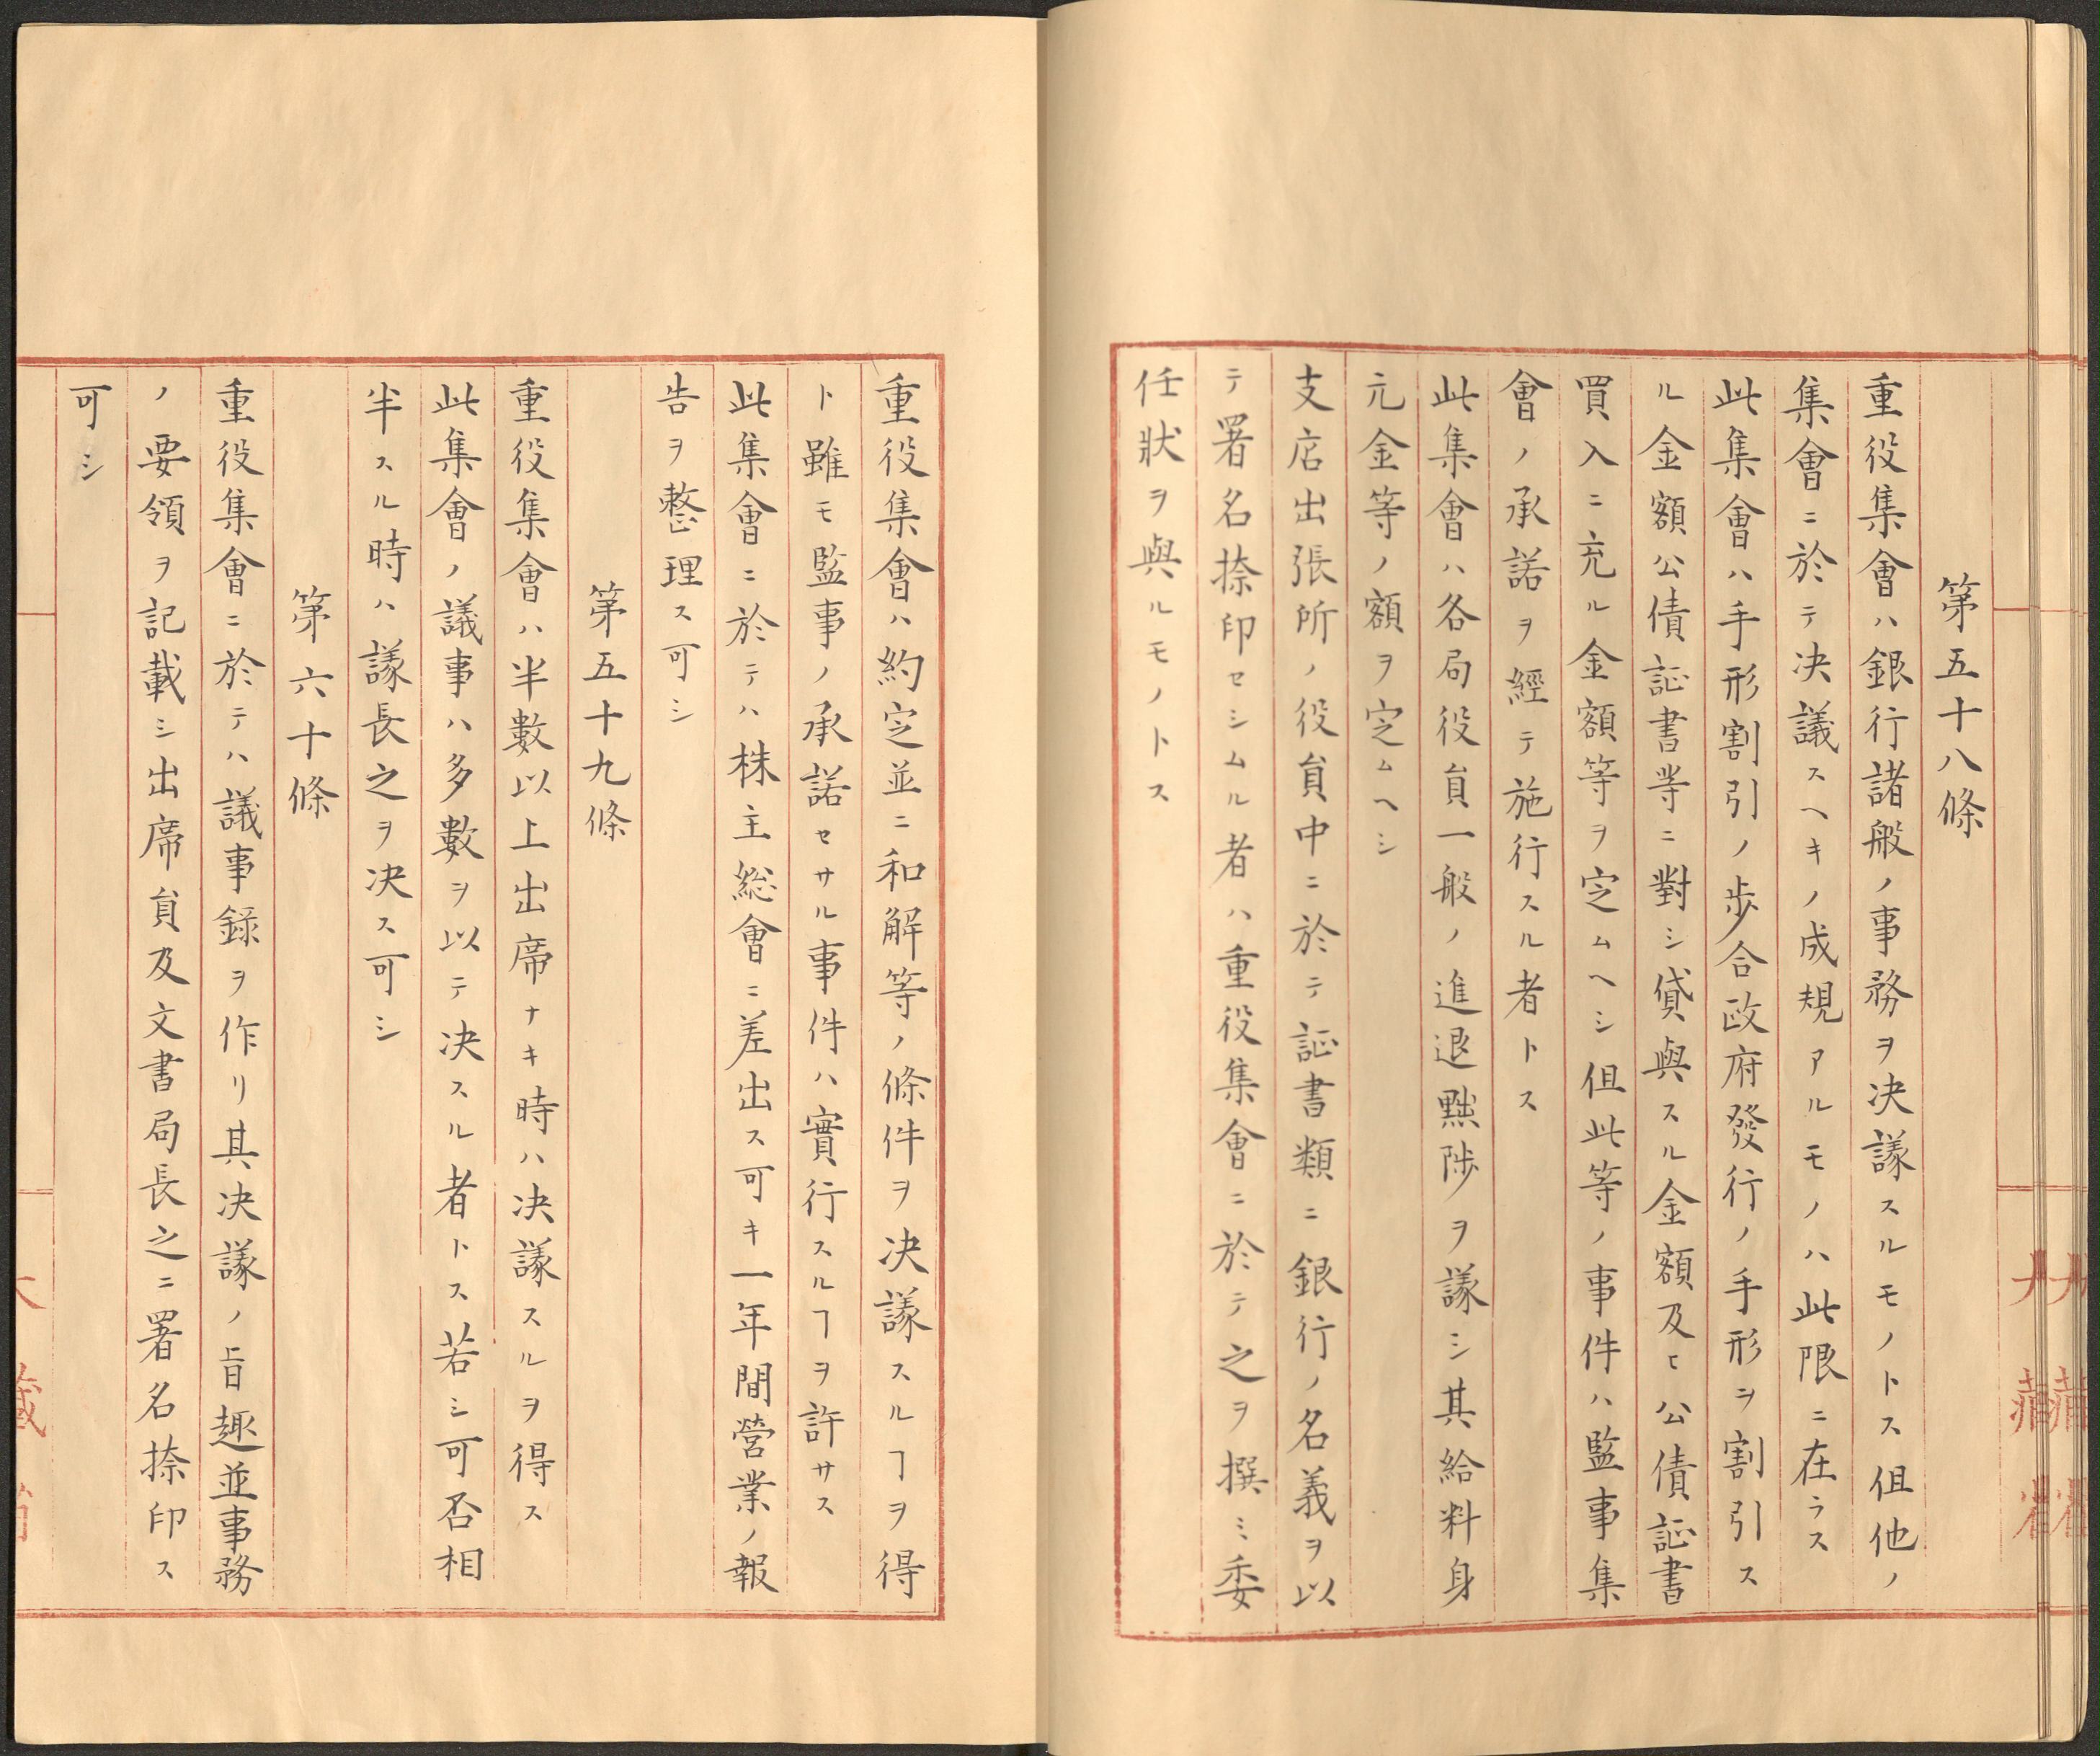 第五十八條
重役集會ハ銀行諸般ノ事務ヲ决議スルモノトス但他ノ
集會ニ於テ决議スヘキノ成規アルモノハ此限ニ在ラス
此集會ハ手形割引ノ歩合政府發行ノ手形ヲ割引ス
ル金額公債証書等ニ對シ貸與スル金額及ヒ公債証書
買入ニ充ル金額等ヲ定ムヘシ但此等ノ事件ハ監事集
會ノ承諾ヲ經テ施行スル者トス
此集會ハ各局役員一般ノ進退黜陟ヲ議シ其給料身
元金等ノ額ヲ定ムヘシ
支店出張所ノ役員中ニ於テ証書類ニ銀行ノ名義ヲ以
テ署名捺印セシムル者ハ重役集會ニ於テ之ヲ撰ミ委
任狀ヲ與ルモノトス
重役集會ハ約定並ニ和解等ノ條件ヲ决議スルヿヲ得
ト雖モ監事ノ承諾セサル事件ハ實行スルヿヲ許サス
此集會ニ於テハ株主総會ニ差出ス可キ一年間營業ノ報
告ヲ整理ス可シ
第五十九條
重役集會ハ半數以上出席ナキ時ハ决議スルヲ得ス
此集會ノ議事ハ多數ヲ以テ决スル者トス若シ可否相
半スル時ハ議長之ヲ决ス可シ
第六十條
重役集會ニ於テハ議事錄ヲ作リ其决議ノ旨趣並事務
ノ要領ヲ記載シ出席員及文書局長之ニ署名捺印ス
可シ